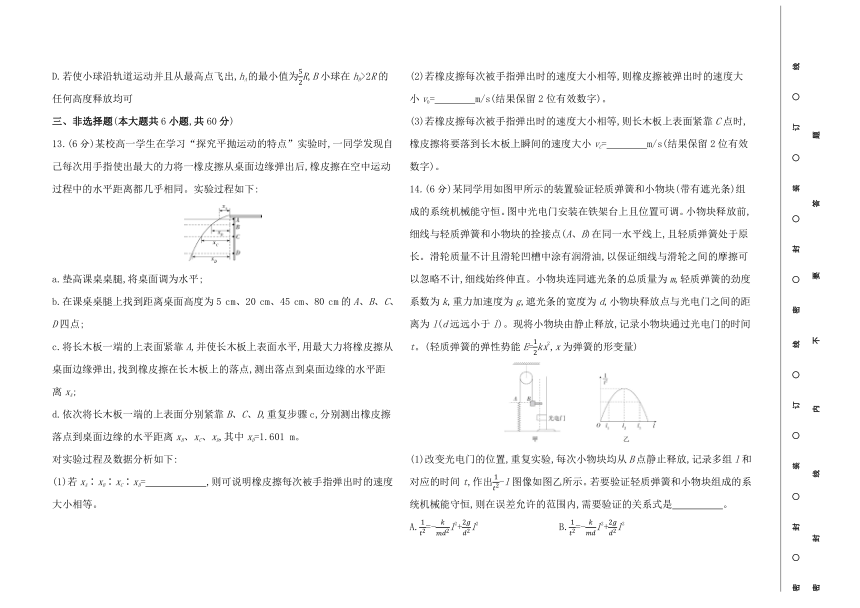 D.若使小球沿轨道运动并且从最高点飞出,hA的最小值为5/2R,B小球在hB>2R的
任何高度释放均可
三、非选择题(本大题共6小题,共60分)
13.(6分)某校高一学生在学习“探究平抛运动的特点”实验时,一同学发现自
己每次用手指使出最大的力将一橡皮擦从桌面边缘弹出后,橡皮擦在空中运动
过程中的水平距离都几乎相同。实验过程如下:
xA
A
B
xB
C
xC
D
xD
a.垫高课桌桌腿,将桌面调为水平;
b.在课桌桌腿上找到距离桌面高度为5 cm、20 cm、45 cm、80 cm的A、B、C、
D四点;
c.将长木板一端的上表面紧靠A,并使长木板上表面水平,用最大力将橡皮擦从
桌面边缘弹出,找到橡皮擦在长木板上的落点,测出落点到桌面边缘的水平距
离xA;
d.依次将长木板一端的上表面分别紧靠B、C、D,重复步骤c,分别测出橡皮擦
落点到桌面边缘的水平距离xB、xC、xD,其中xD=1.601 m。
对实验过程及数据分析如下:
(1)若xA∶xB∶xC∶xD=________,则可说明橡皮擦每次被手指弹出时的速度
大小相等。
(2)若橡皮擦每次被手指弹出时的速度大小相等,则橡皮擦被弹出时的速度大
小v0=________m/s(结果保留2位有效数字)。
(3)若橡皮擦每次被手指弹出时的速度大小相等,则长木板上表面紧靠C点时,
橡皮擦将要落到长木板上瞬间的速度大小vC=________m/s(结果保留2位有效
数字)。
14.(6分)某同学用如图甲所示的装置验证轻质弹簧和小物块(带有遮光条)组
成的系统机械能守恒。图中光电门安装在铁架台上且位置可调。小物块释放前,
细线与轻质弹簧和小物块的拴接点(A、B)在同一水平线上,且轻质弹簧处于原
长。滑轮质量不计且滑轮凹槽中涂有润滑油,以保证细线与滑轮之间的摩擦可
以忽略不计,细线始终伸直。小物块连同遮光条的总质量为m,轻质弹簧的劲度
系数为k,重力加速度为g,遮光条的宽度为d,小物块释放点与光电门之间的距
离为l(d远远小于l)。现将小物块由静止释放,记录小物块通过光电门的时间
t。(轻质弹簧的弹性势能E=1/2kx²,x为弹簧的形变量)
A B
光电门
甲
1/t²
O l1 l2 l3 l
乙
(1)改变光电门的位置,重复实验,每次小物块均从B点静止释放,记录多组l和
对应的时间t,作出1/t²-l图像如图乙所示。若要验证轻质弹簧和小物块组成的系
统机械能守恒,则在误差允许的范围内,需要验证的关系式是________。
A.1/t²=-k/md²l²+2g/d²l² B.1/t²=-k/mdl²+2g/d²l²
密 ○ 封 ○ 装 ○ 订 ○ 线 ○ 密 ○ 封 ○ 装 ○ 订 ○ 线
密 封 线 内 不 要 答 题